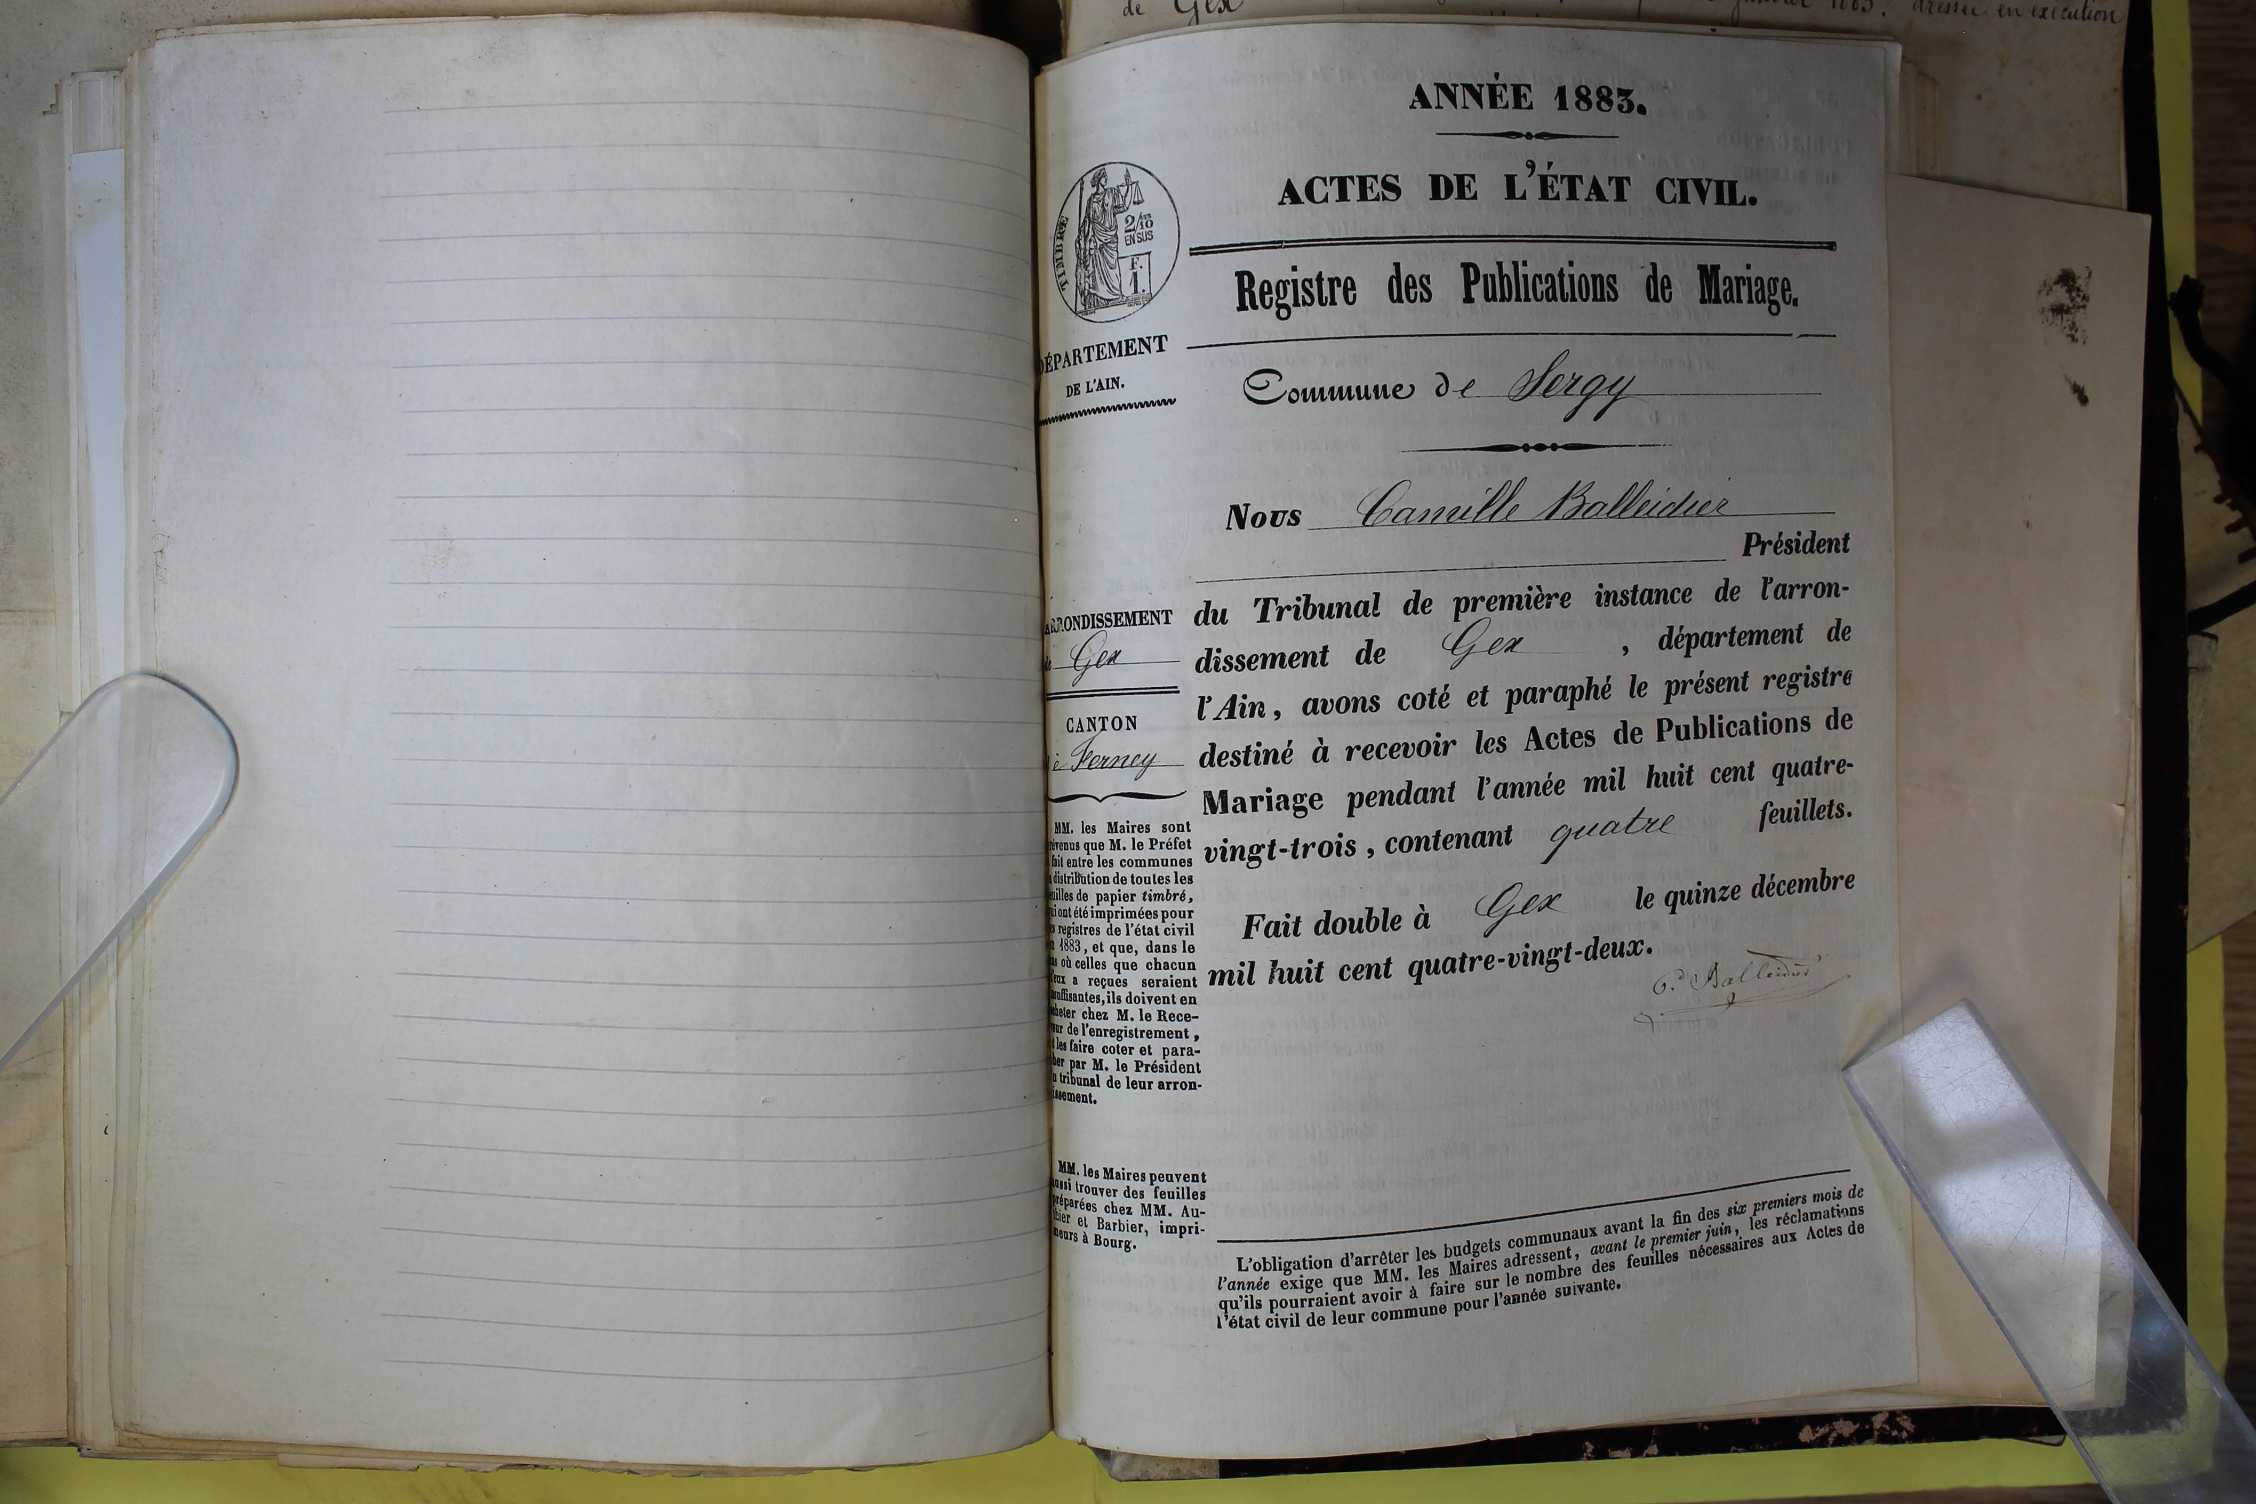 de Gex
1883. dressée en exécution
ANNÉE 1883.
ACTES DE L'ÉTAT CIVIL.
TIMBRE
2/10
EN SUS
F.
1.
Registre des Publications de Mariage.
DÉPARTEMENT
DE L'AIN.
Commune de Sergy
Nous Camille Balleidier
Président
ARRONDISSEMENT
de Gex
CANTON
de Ferney
du Tribunal de première instance de l'arron-
dissement de Gex , département de
l'Ain, avons coté et paraphé le présent registre
destiné à recevoir les Actes de Publications de
Mariage pendant l'année mil huit cent quatre-
vingt-trois, contenant quatre feuillets.
Fait double à Gex le quinze décembre
mil huit cent quatre-vingt-deux.
C. Balleidier
MM. les Maires sont
révenus que M. le Préfet
fait entre les communes
distribution de toutes les
uilles de papier timbré,
ui ont été imprimées pour
s registres de l'état civil
n 1883, et que, dans le
as où celles que chacun
'eux a reçues seraient
nsuffisantes, ils doivent en
cheter chez M. le Rece-
eur de l'enregistrement,
t les faire coter et para-
her par M. le Président
u tribunal de leur arron-
issement.
MM. les Maires peuvent
ussi trouver des feuilles
préparées chez MM. Au-
thier et Barbier, impri-
meurs à Bourg.
L'obligation d'arrêter les budgets communaux avant la fin des six premiers mois de
l'année exige que MM. les Maires adressent, avant le premier juin, les réclamations
qu'ils pourraient avoir à faire sur le nombre des feuilles nécessaires aux Actes de
l'état civil de leur commune pour l'année suivante.